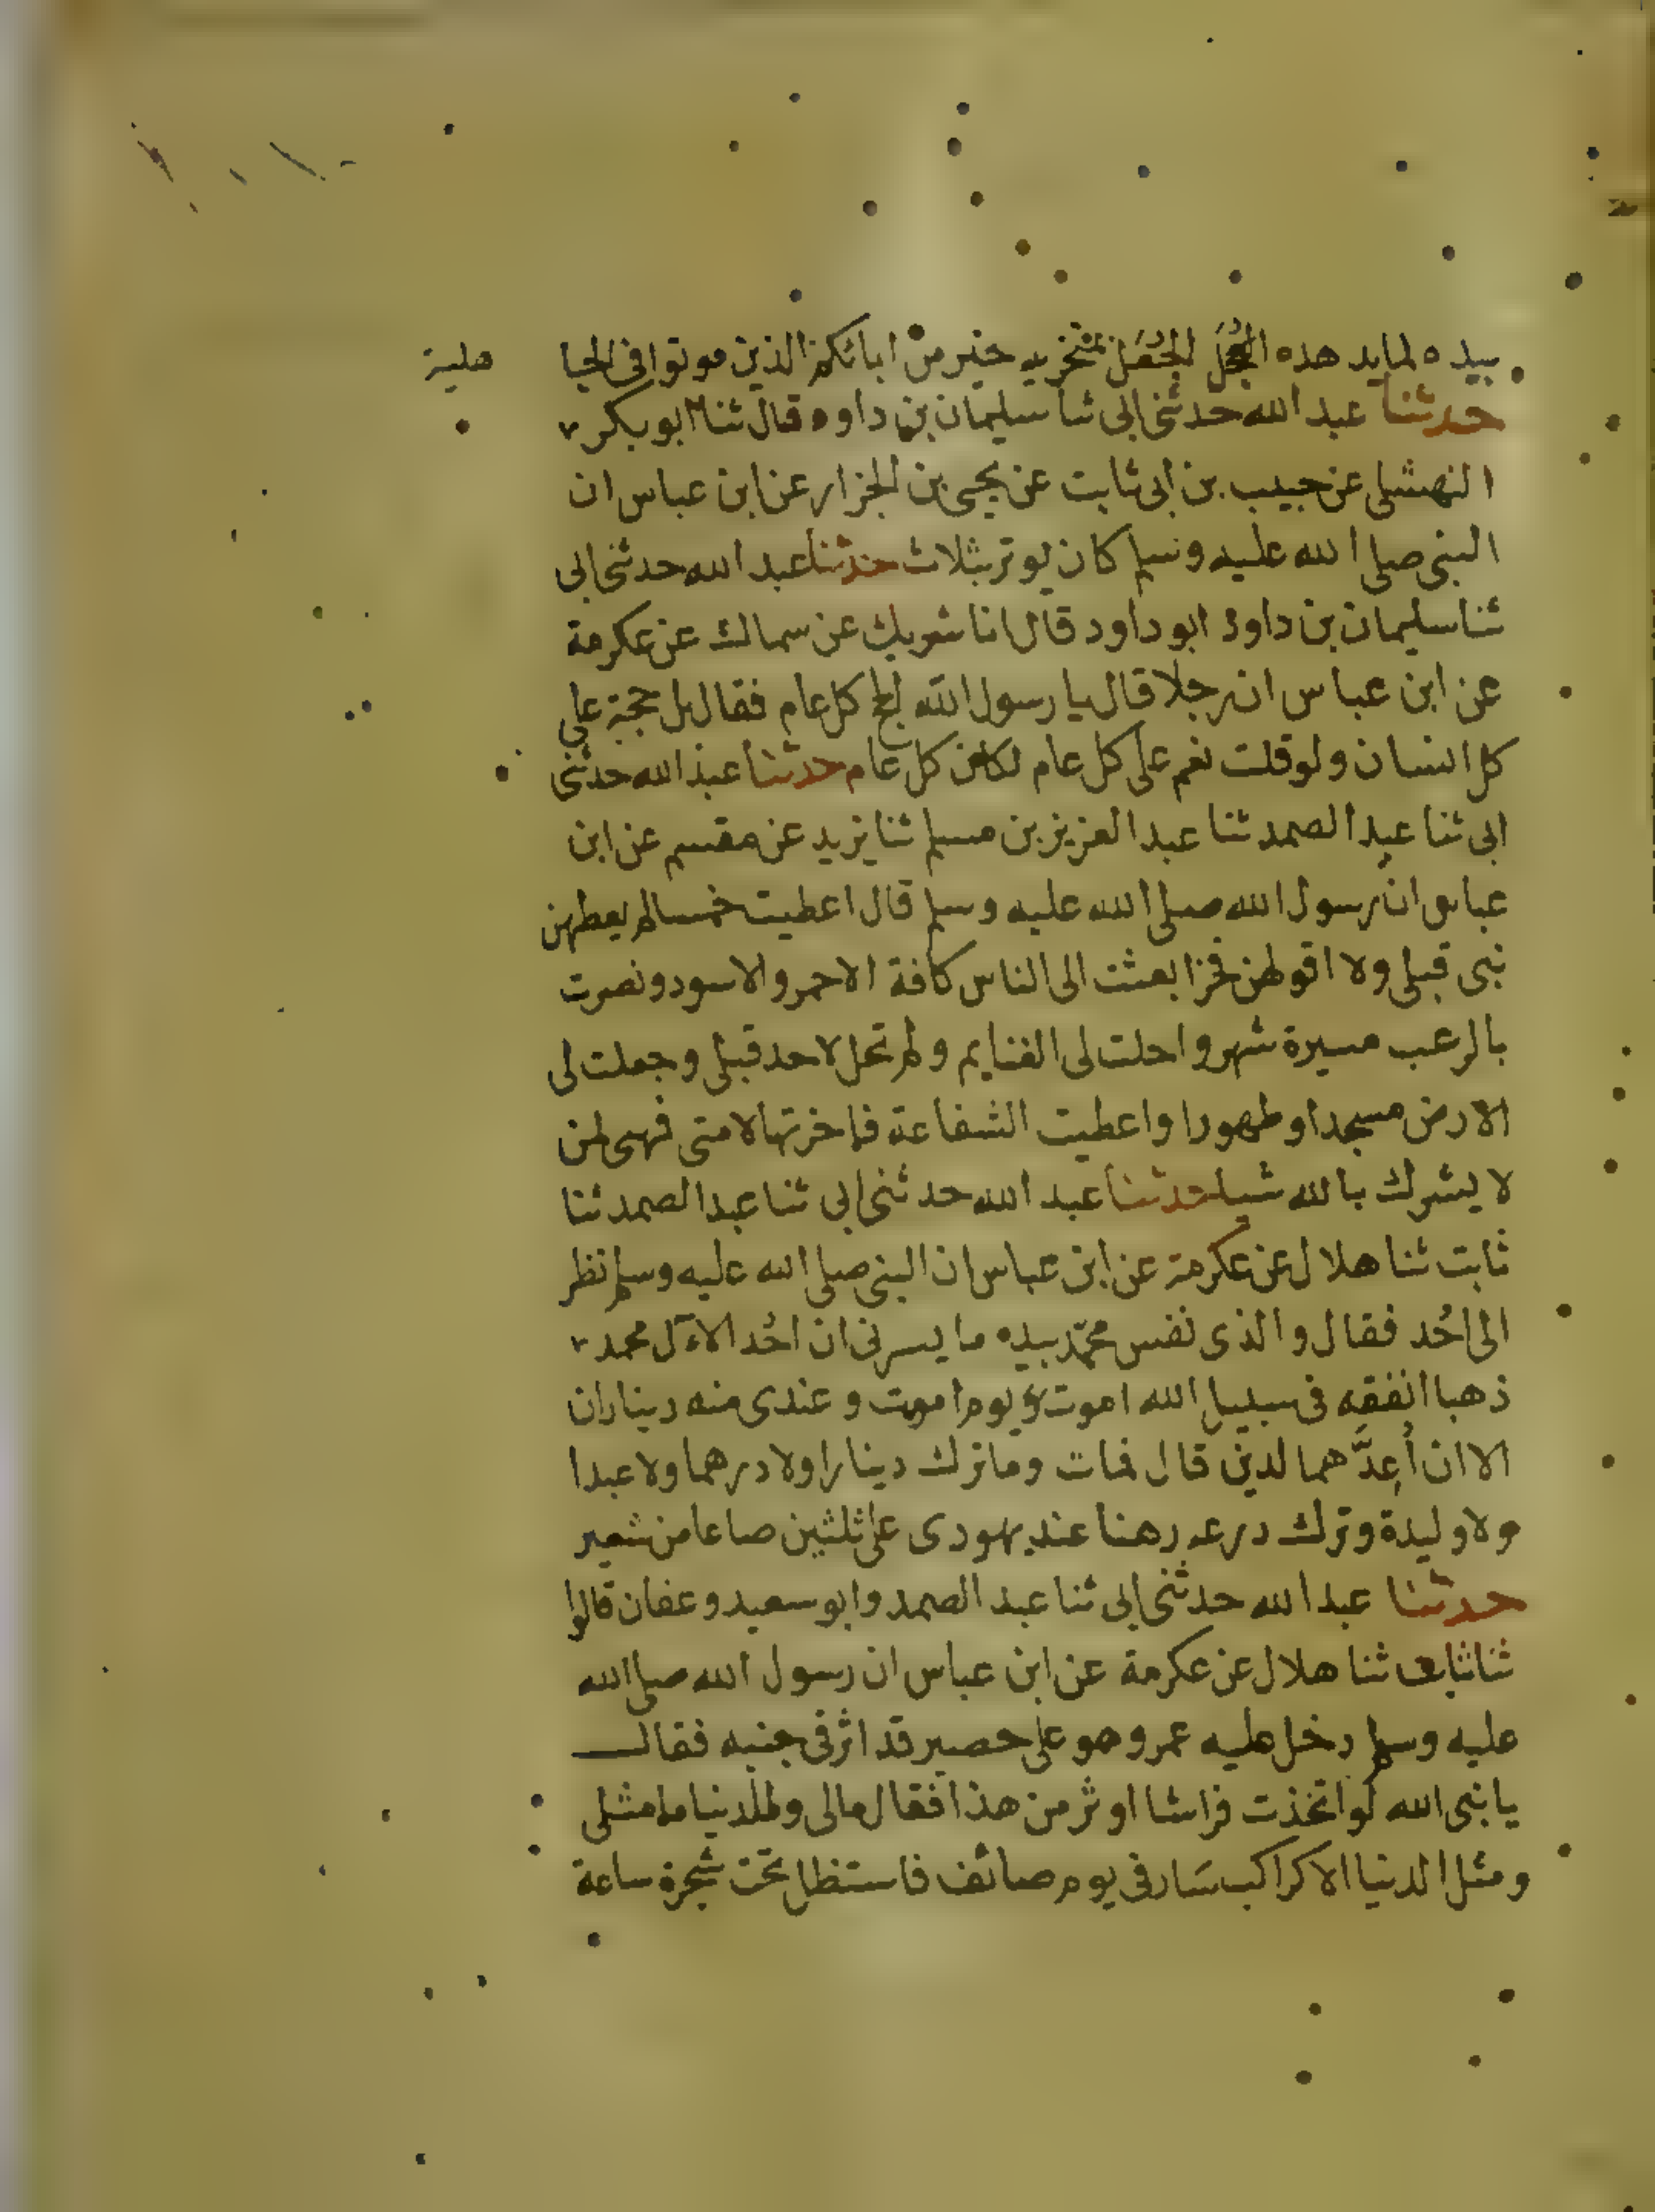 بيده لمايد هده الجعل بمنخريه خير من ابائكم الذين موتوا فى الجا هلية
حدثنا عبد الله حدثنى ابى ثنا سليمان بن داود قال ثنا ابو بكر
النهشلى عن حبيب بن ابى ثابت عن يحيى بن الجزار عن ابن عباس ان
النبى صلى الله عليه وسلم كان يوتر بثلاث حدثنا عبد الله حدثنى ابى
ثنا سليمان بن داود ابو داود قال انا شريك عن سماك عن عكرمة
عن ابن عباس ان رجلا قال يا رسول الله الحج كل عام فقال بل حجة على
كل انسان ولو قلت نعم على كل عام لكان كل عام حدثنا عبد الله حدثنى
ابى ثنا عبد الصمد ثنا عبد العزيز بن مسلم ثنا يزيد عن مقسم عن ابن
عباس ان رسول الله صلى الله عليه وسلم قال اعطيت خمسا لم يعطهن
نبى قبلى ولا اقولهن فخرا بعثت الى الناس كافة الاحمر والاسود ونصرت
بالرعب مسيرة شهر واحلت لى الغنايم ولم تحل لاحد قبلى وجعلت لى
الارض مسجدا وطهورا واعطيت الشفاعة فاخرتها لامتى فهى لمن
لا يشرك بالله شيا حدثنا عبد الله حدثنى ابى ثنا عبد الصمد ثنا
ثابت ثنا هلال عن عكرمة عن ابن عباس ان النبى صلى الله عليه وسلم نظر
الى احُد فقال والذى نفس محمّد بيده ما يسرنى ان احُد الآل محمد
ذهبا انفقه فى سبيل الله اموت يوم اموت وعندى منه ديناران
الا ان أُعِدَّهما لدين قال فمات وما ترك دينارا ولا درهما ولا عبدا
ولا وليدة وترك درعه رهنا عند يهودى على ثلثين صاعا من شعير
حدثنا عبد الله حدثنى ابى ثنا عبد الصمد وابو سعيد وعفان قالوا
ثنا ثابت ثنا هلال عن عكرمة عن ابن عباس ان رسول الله صلى الله
عليه وسلم دخل عليه عمر وهو على حصير قد اثر فى جنبه فقال
يا نبى الله لو اتخذت فراشا اوثر من هذا فقال مالى وللدنيا ما مثلى
ومثل الدنيا الا كراكب سَار فى يوم صائف فاستظل تحت شجرة ساعة